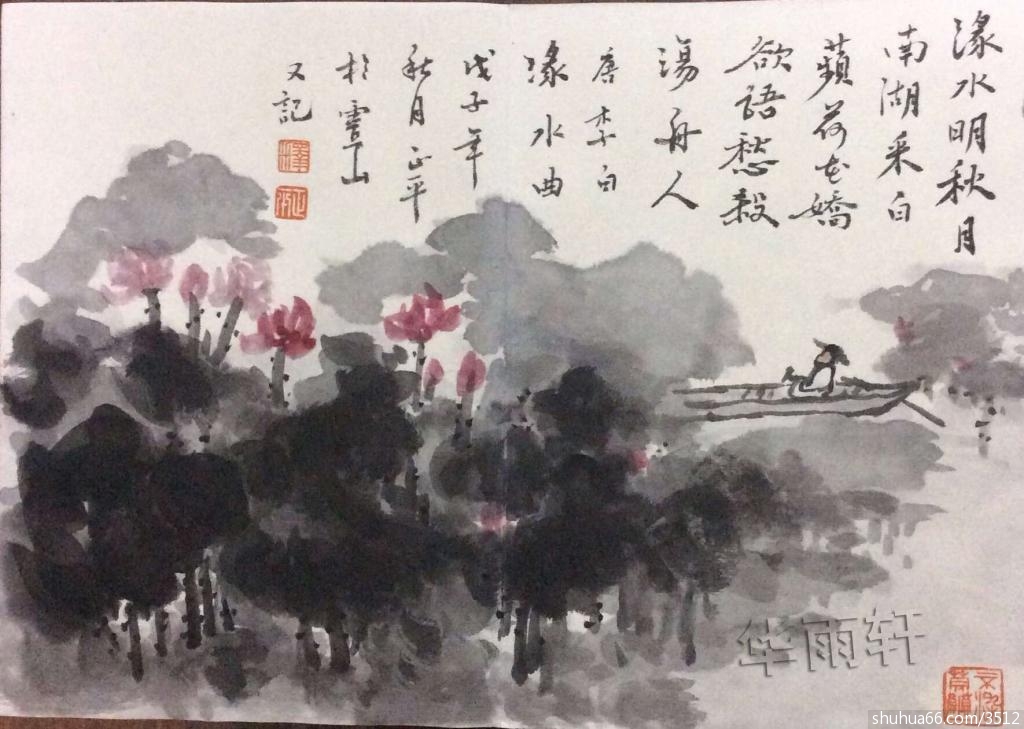 淥水明秋月
南湖采白
蘋荷花嬌
欲語愁殺
蕩舟人
唐李白
淥水曲
戊子年
秋月正平
於霊山
又記
华丽轩
shuhua66.com/3512